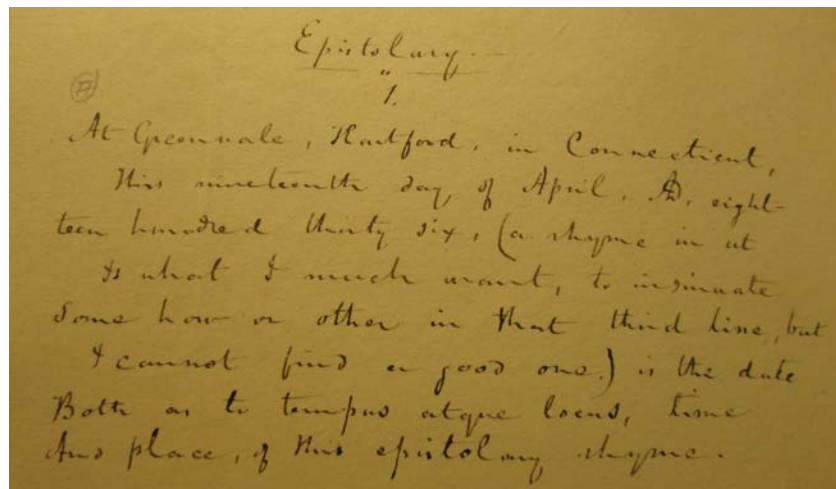 Epistolary.
1.
At Greenvale, Hartford, in Connecticut,
This nineteenth day, of April, AD, eight-
teen hundred thirty six, (a rhyme in ut
Is what I much want, to insinuate
Some how or other in that third line, but
I cannot find a good one.) is the date
Both as to tempus atque locus, time
And place, of this epistolary rhyme.